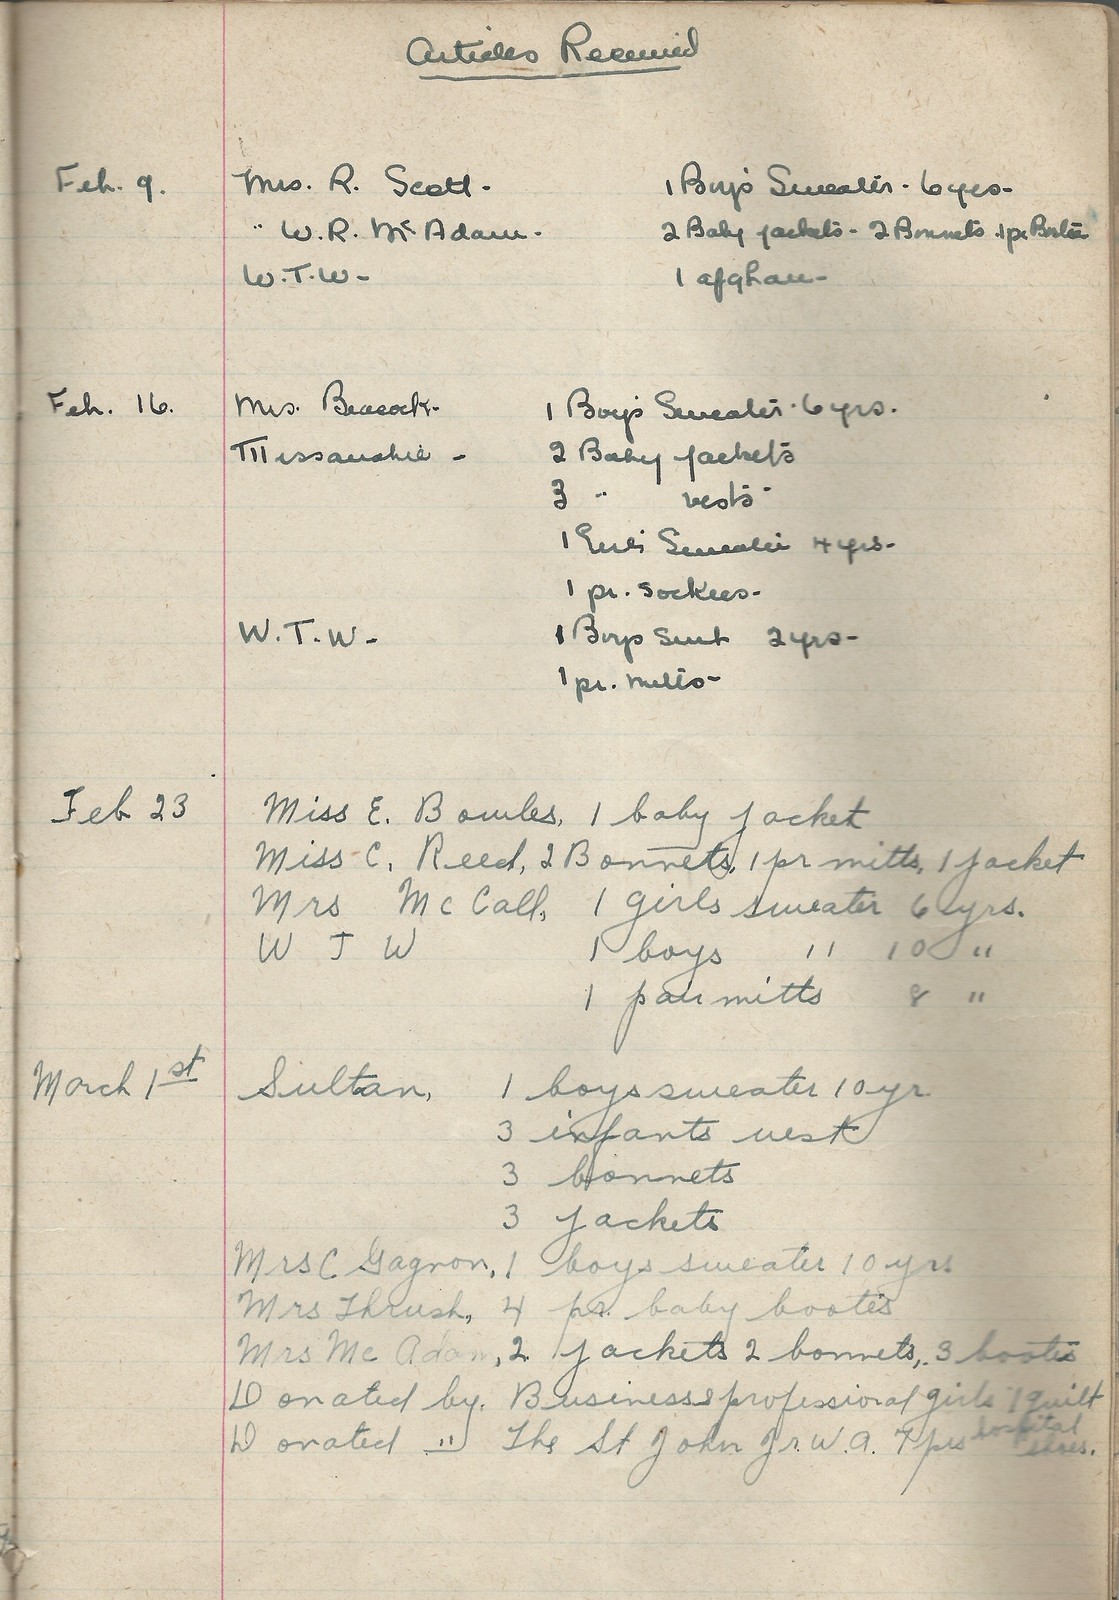 Articles Received
Feb. 9. Mrs. R. Scott - 1 Boy's Sweater - 6 yrs -
" W.R. McAdam - 2 Baby jackets - 2 Bonnets 1 pr Bootie
W.T.W - 1 afghan -
Feb. 16. Mrs. Beacock - 1 Boy's Sweater - 6 yrs.
Missanabie - 2 Baby jackets
3 " vests -
1 Girl's Sweater 4 yrs -
1 pr. Sockees -
W.T.W - 1 Boys Suit 2 yrs -
1 pr. mitts -
Feb 23 Miss E. Bowles, 1 baby jacket
Miss C. Reed, 2 Bonnets, 1 pr mitts, 1 jacket
Mrs McCall, 1 girls sweater 6 yrs.
W T W 1 boys " 10 "
1 pair mitts 8 "
March 1st Sultan, 1 boys sweater 10 yr
3 infants vest
3 bonnets
3 jackets
Mrs C Gagnon, 1 boys sweater 10 yrs
Mrs Thrush, 4 pr. baby booties
Mrs Mc Adam, 2 jackets 2 bonnets, 3 booties
Donated by. Business & professional girls 1 quilt
Donated " The St John Jr. W.A. 7 prs hospital shoes.